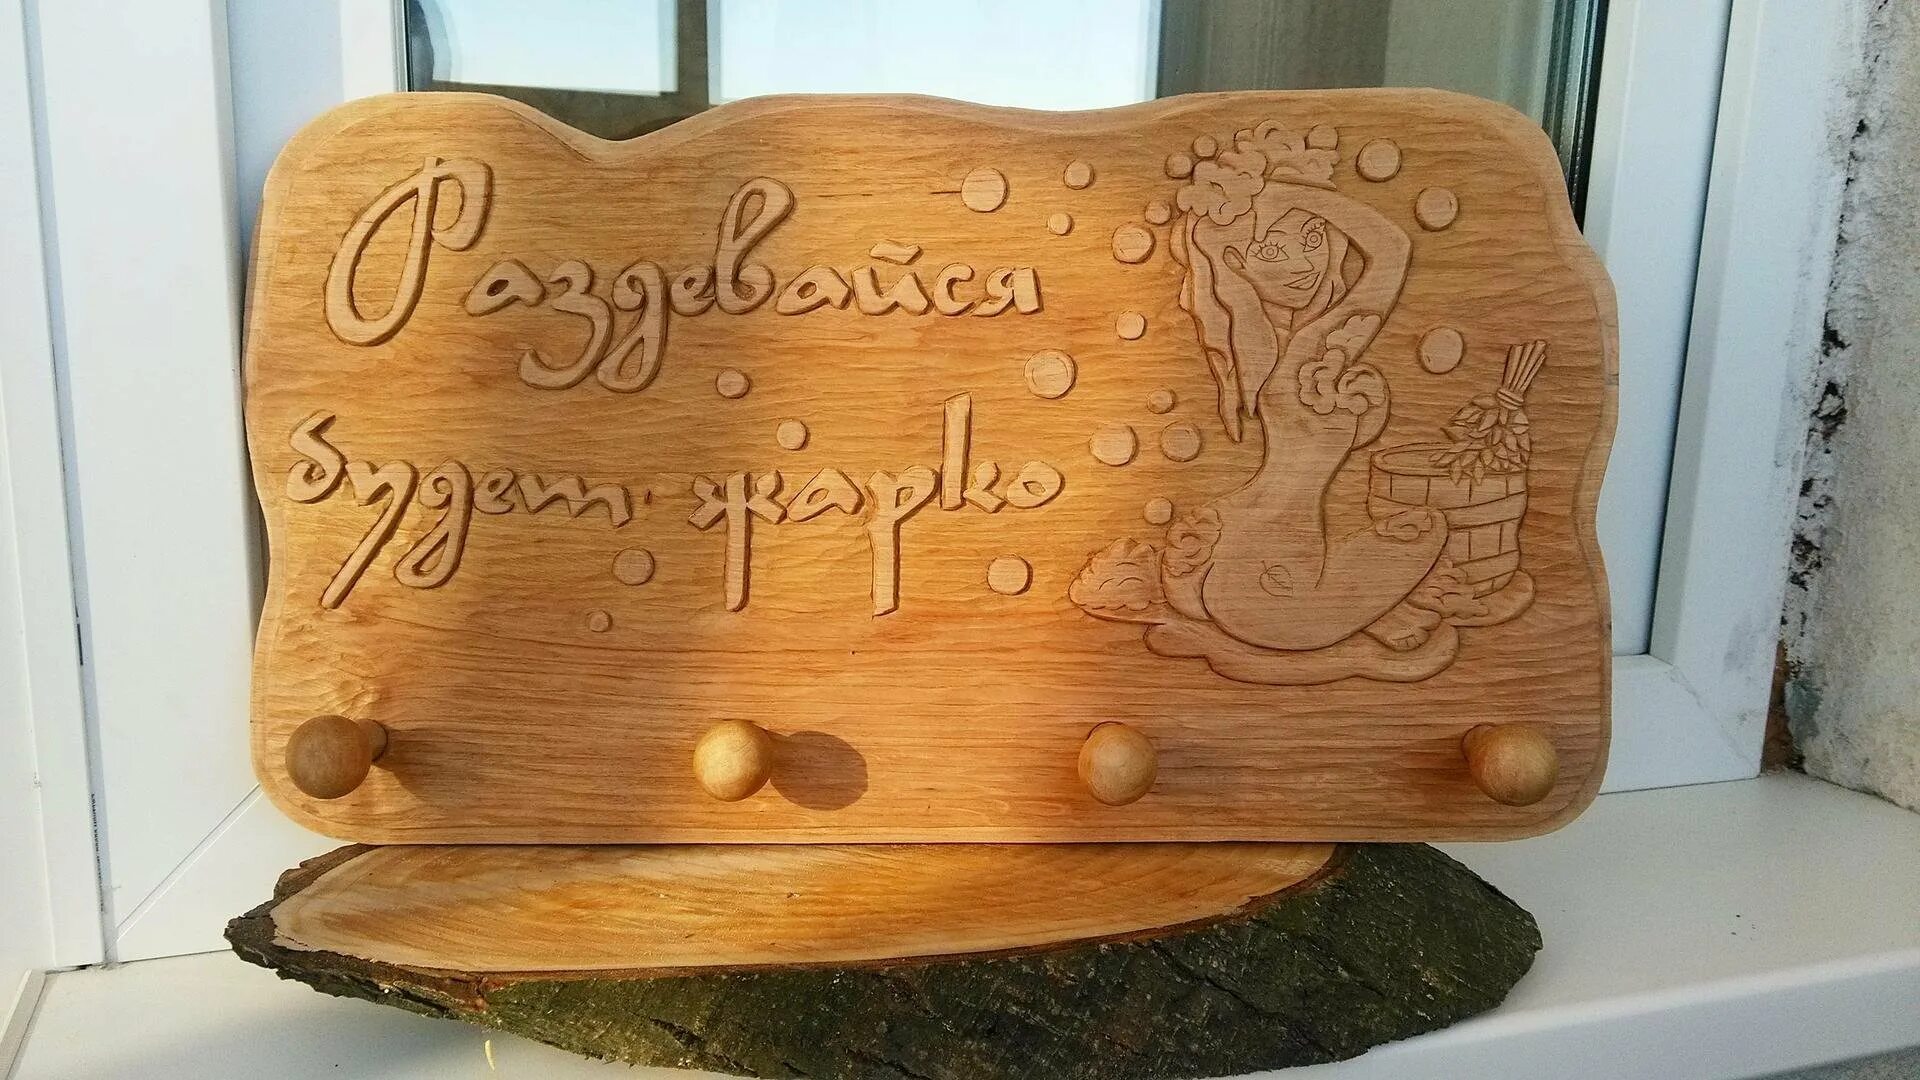 Раздевайся
будет жарко